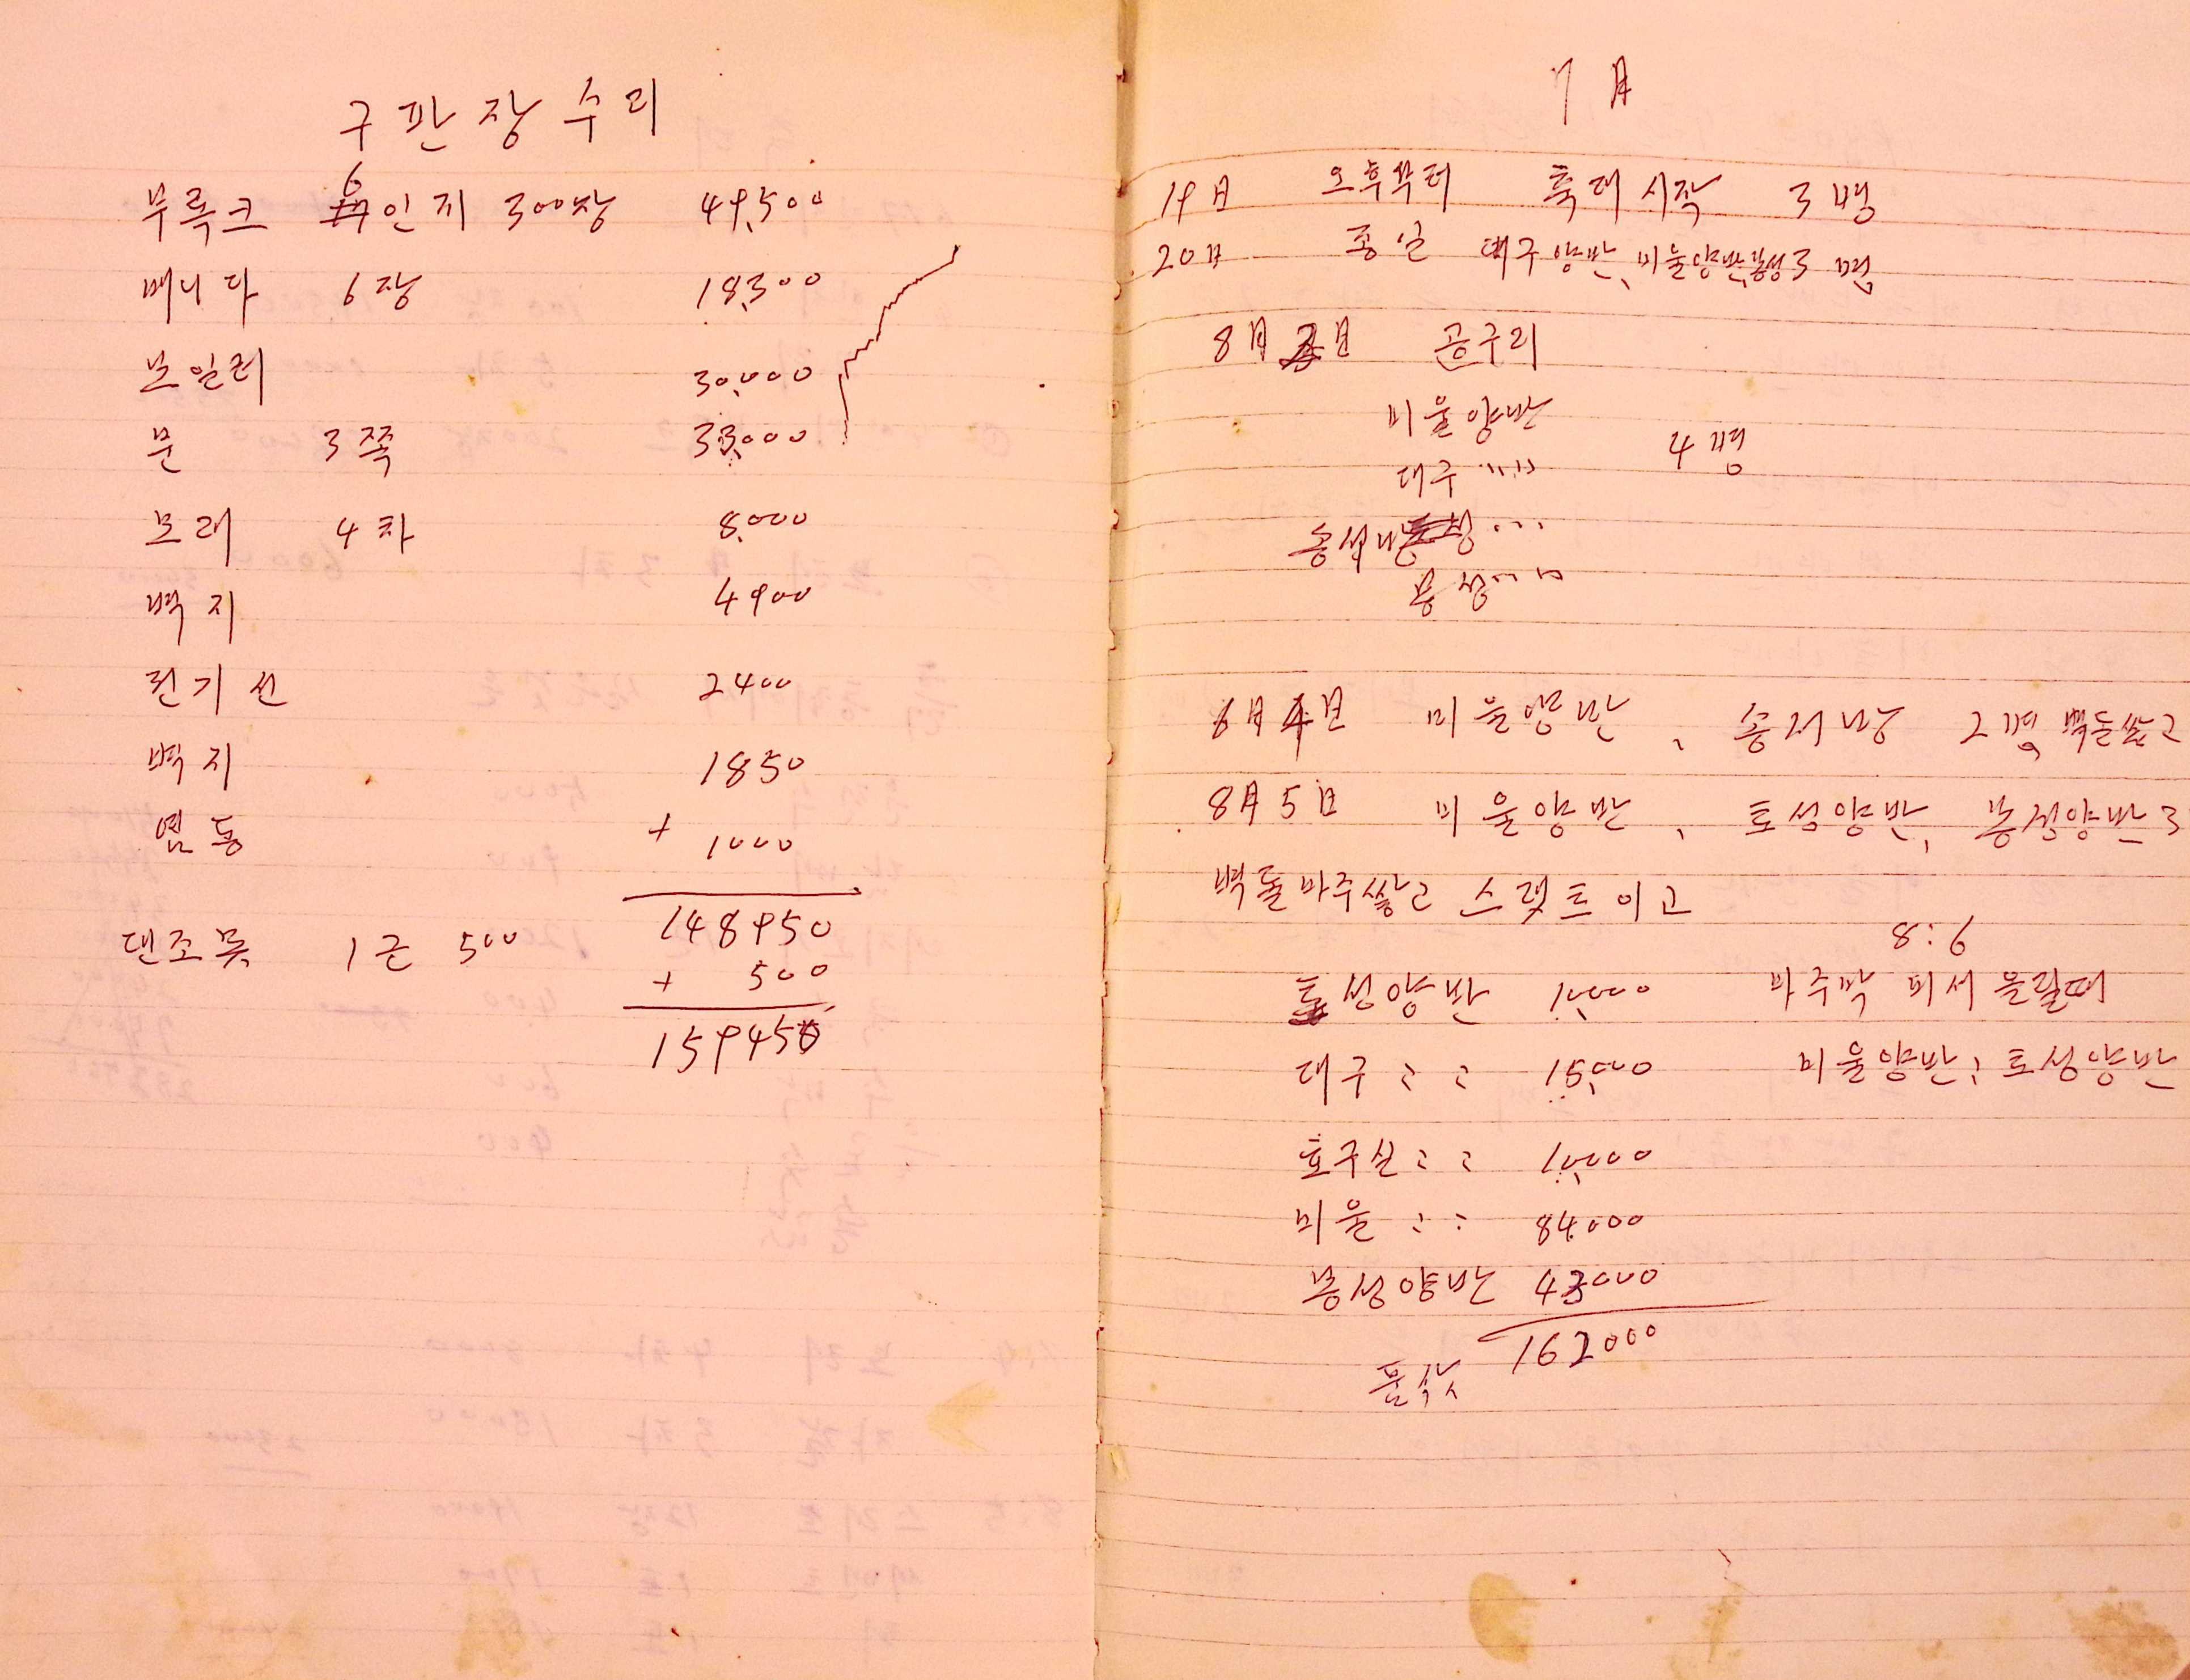 구판장수리
부록크 6인지 300장 49,500
베니다 6장 18,300
보일러 30,000
문 3쪽 33,000
모래 4차 8,000
벽지 4900
전기선 2400
벽지 1850
염통 + 1000
148950
댄조못 1근 500 + 500
159450
7月
19日 오후부터 축대시작 3명
20日 종일 대구양반, 미울양반, 봉성 3명
8月 2日 공구리
미울양반
대구 〃〃 4명
송서방
봉성 〃〃
8月 4日 미울양반, 송서방 2명 벽돌쌓고
8月 5日 미울양반, 토성양반, 봉성양반 3
벽돌마주쌓고 스렛트이고
8:6
토성양반 10,000 마주막 피서올릴때
대구 〃 〃 15,000 미울양반, 토성양반
호구실 〃 〃 10,000
미울 〃 〃 84,000
봉성양반 43000
162000
품삯